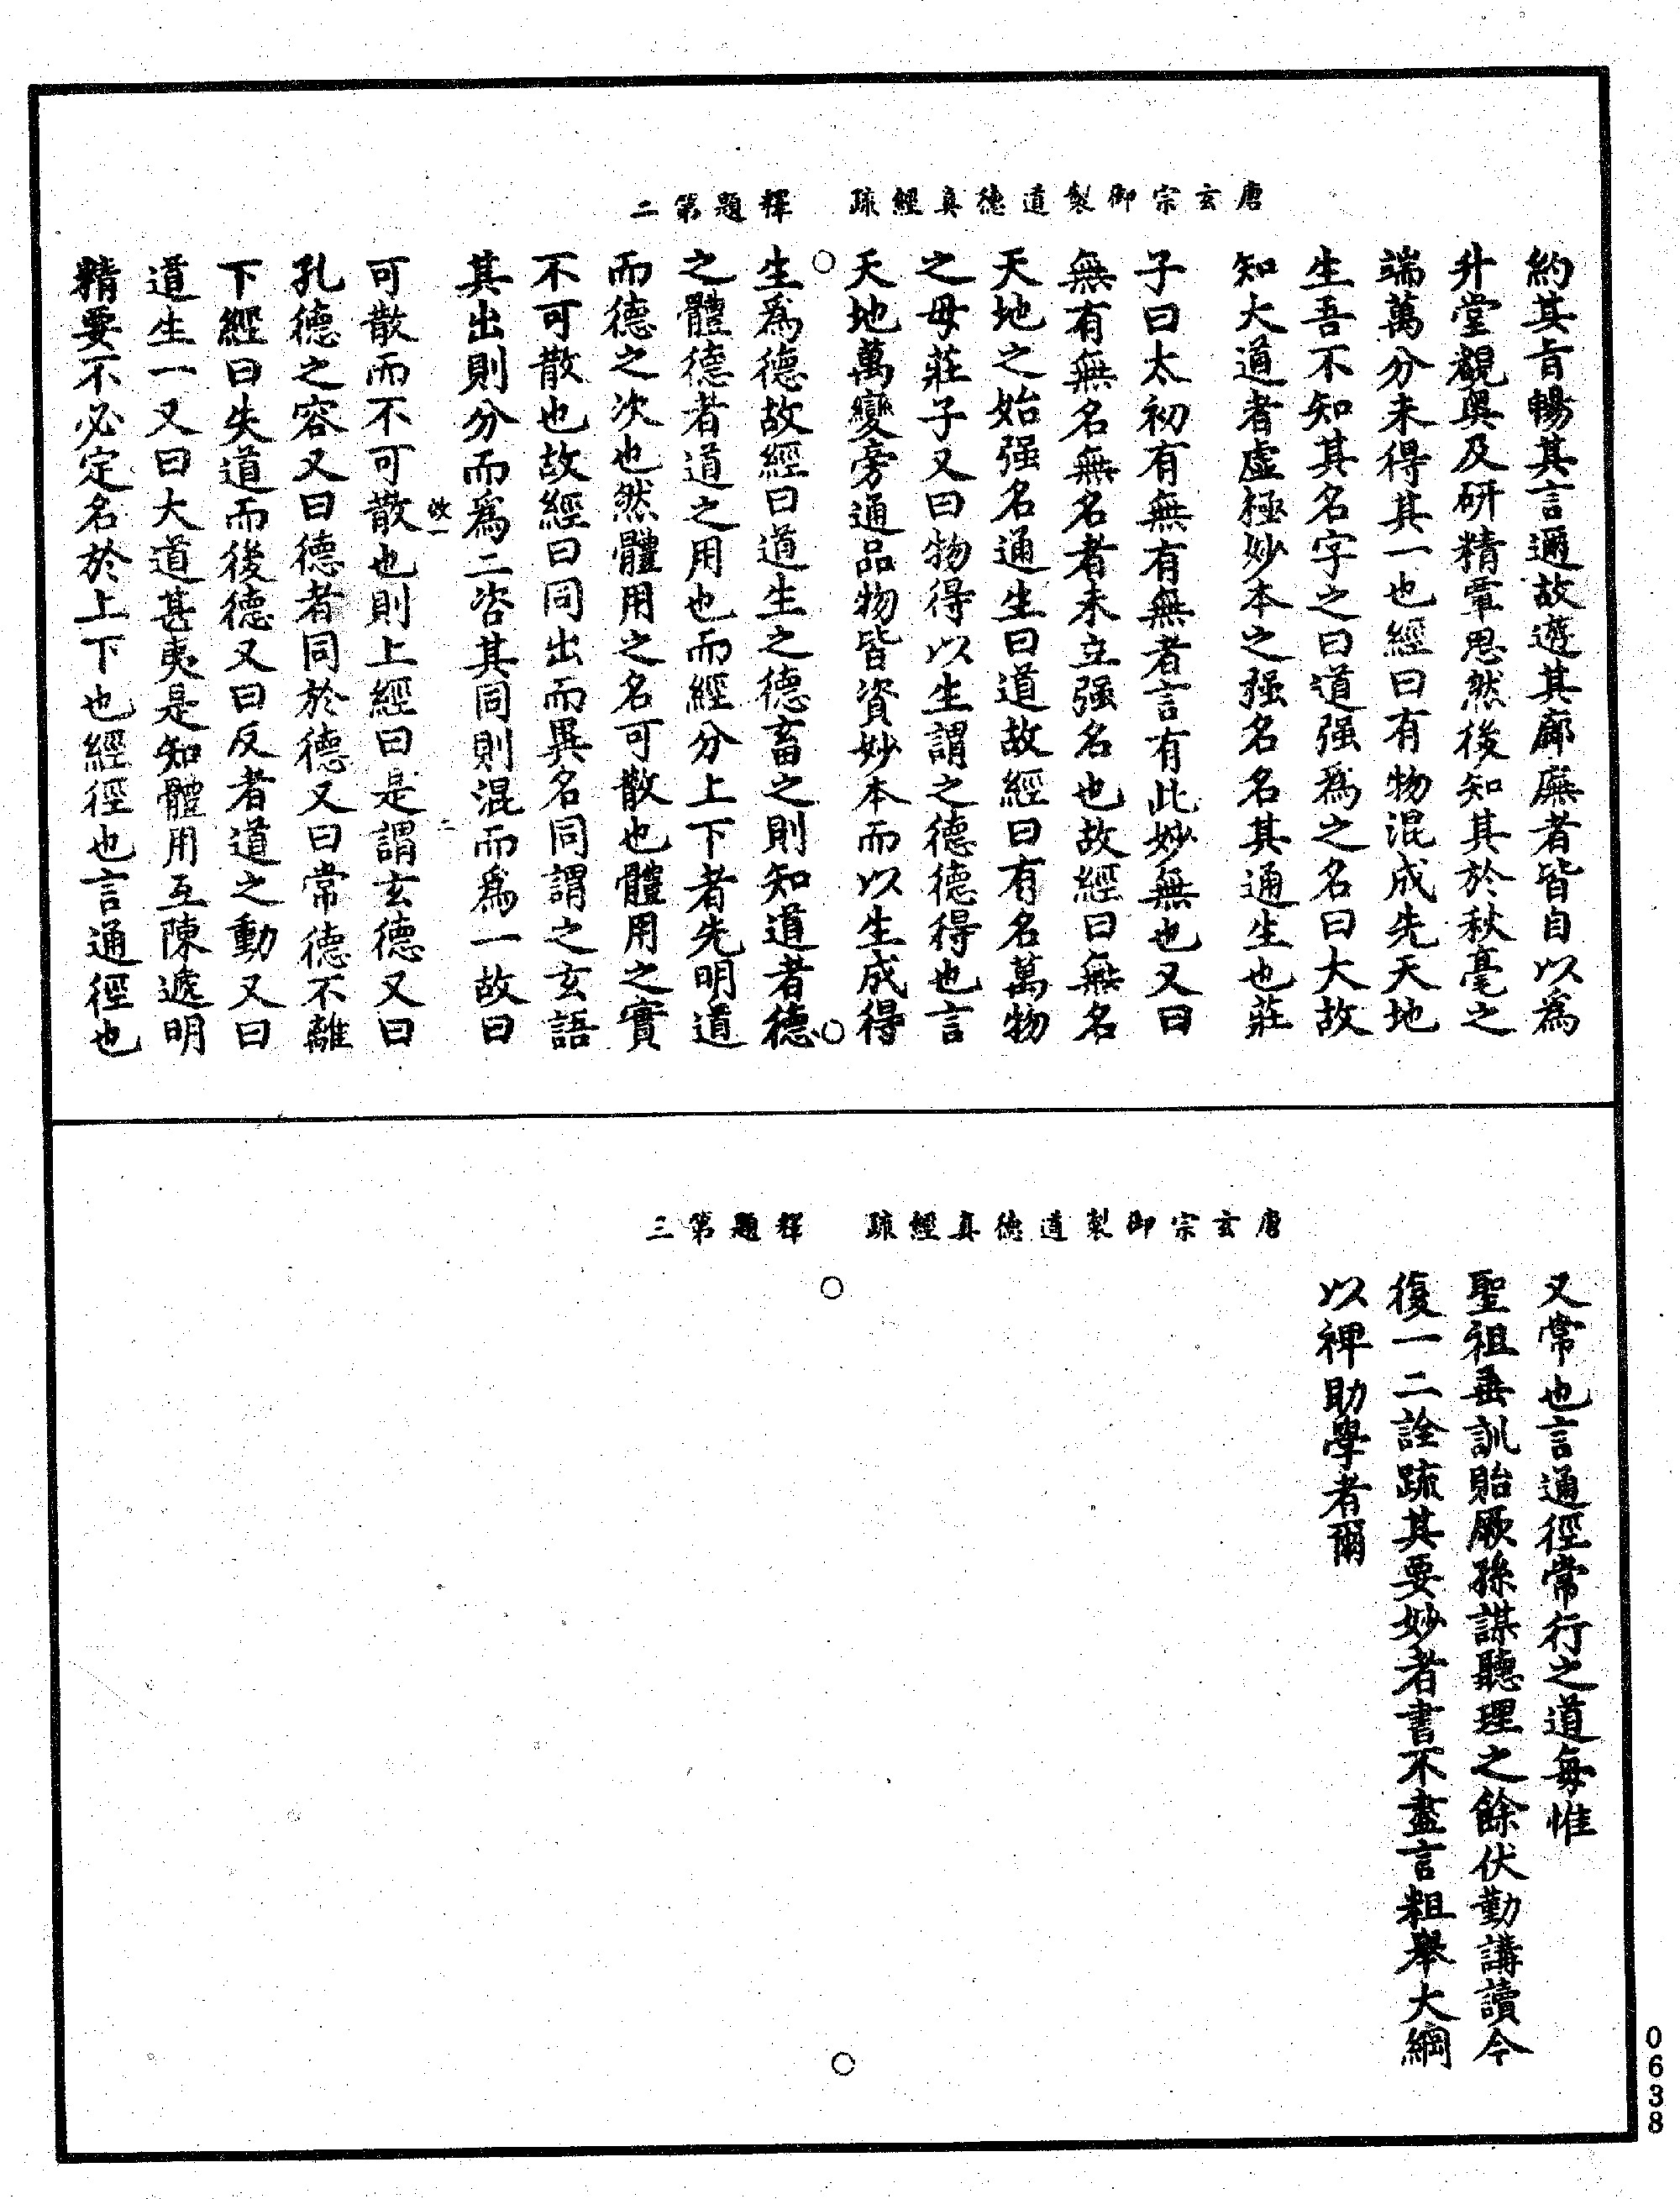 唐玄宗御製道德真經疏　釋題第二
約其旨暢其言邇故遊其廊廡者皆自以爲
升堂覩奧及研精覃思然後知其於秋毫之
端萬分未得其一也經曰有物混成先天地
生吾不知其名字之曰道强爲之名曰大故
知大道者虛極妙本之强名名其通生也莊
子曰太初有無有無者言有此妙無也又曰
無有無名無名者未立强名也故經曰無名
天地之始强名通生曰道故經曰有名萬物
之母莊子又曰物得以生謂之德德得也言
天地萬變旁通品物皆資妙本而以生成得
生爲德故經曰道生之德畜之則知道者德
之體德者道之用也而經分上下者先明道
而德之次也然體用之名可散也體用之實
不可散也故經曰同出而異名同謂之玄語
其出則分而爲二咨其同則混而爲一故曰
改一
二
可散而不可散也則上經曰是謂玄德又曰
孔德之容又曰德者同於德又曰常德不離
下經曰失道而後德又曰反者道之動又曰
道生一又曰大道甚夷是知體用互陳遞明
精要不必定名於上下也經徑也言通徑也
唐玄宗御製道德真經疏　釋題第三
又常也言通徑常行之道每惟
聖祖垂訓貽厥孫謀聽理之餘伏勤講讀今
復一二詮疏其要妙者書不盡言粗舉大綱
以裨助學者爾
0638